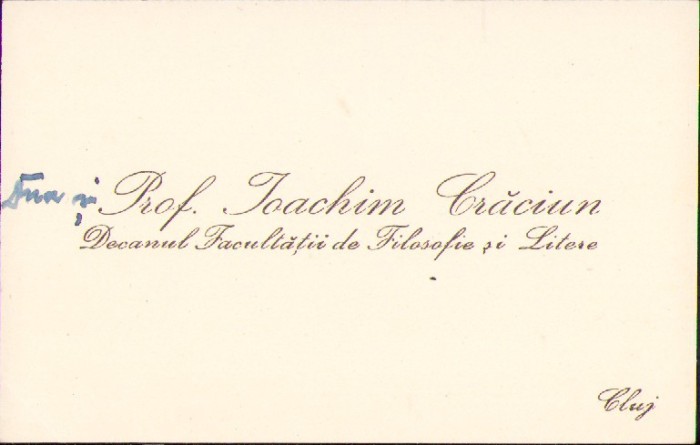 Dna și Prof. Ioachim Crăciun
Decanul Facultății de Filosofie și Litere
Cluj